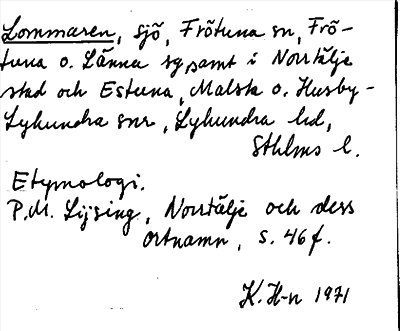 Lommaren, sjö, Frötuna sn, Frö-
tuna o. Länna sg samt i Norrtälje
stad och Estuna, Malsta o. Husby-
Lyhundra snr, Lyhundra hd,
Sthlms l.
Etymologi.
P.M. Lijsing, Norrtälje och dess
ortnamn, s. 46 f.
K. H-n 1971